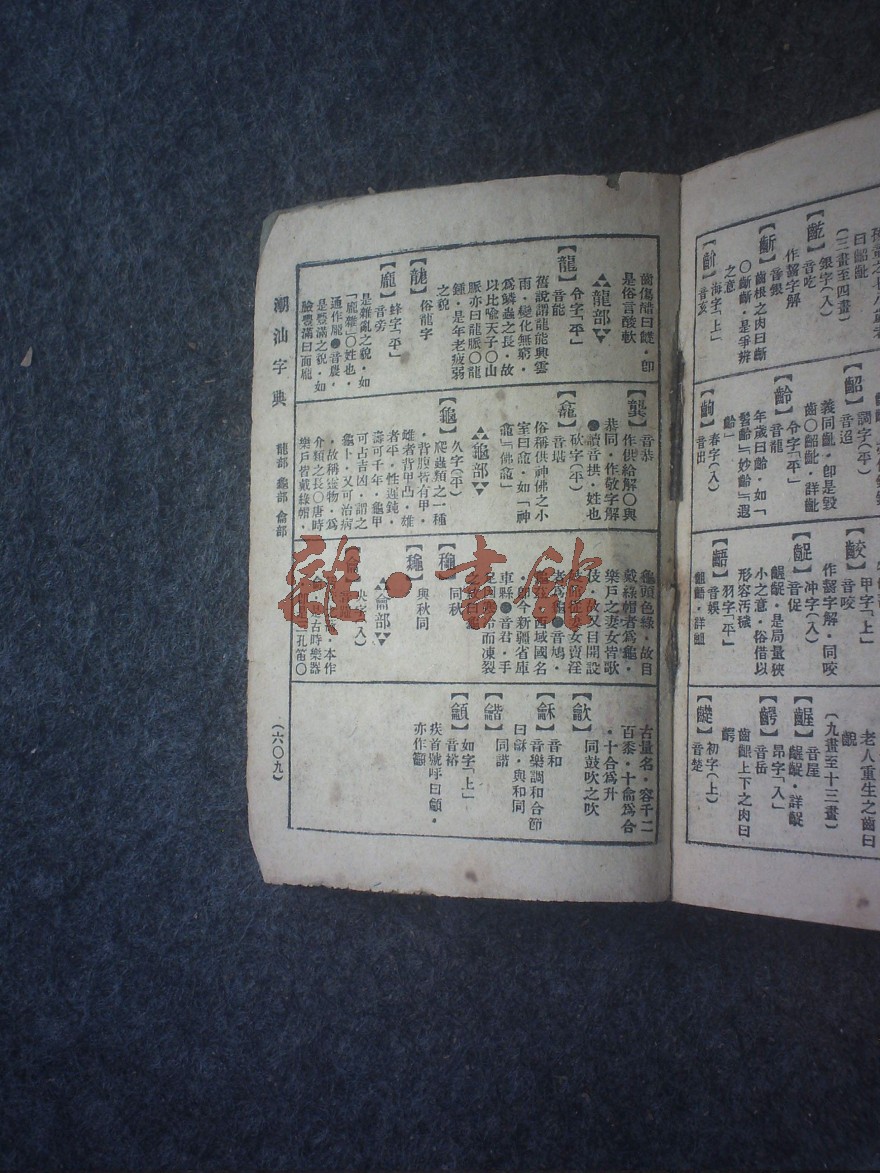 (三畫至四畫)
【齕】音吃
銀字(入)
作齧字解
【齗】音銀
齒根之肉曰齗
〇齗齗・是爭辨
之意
【齘】海字「上」
音亥
【齠】調字(平)
音迢
義同齔・卽是毀
齒〇齠齔・詳齔
【齡】令字「平」
音龍
年歲曰齡・如「
髫齡」「妙齡」「遐
齡」
【齣】春字(入)
音出
【齩】甲字「上」
音咬
作齧字解・同咬
【齪】冲字(入)
音促
齷齪・是局量狹
小之意・俗借以
形容汚穢
【齬】羽字「平」
音娛
齟齬・詳齟
老人重生之齒曰
齯
(九畫至十三畫)
【齷】音屋
齷齪・詳齪
【齶】昂字「入」
音岳
齒齦上下之肉曰
齶
【齼】初字(上)
音楚
齒傷醋曰齼・卽
是俗言酸軟
龍部
【龍】令字「平」
音能
舊說謂龍能興雲
雨・變化無窮・
爲鱗蟲之長・故
以比喩天子〇山
脈亦曰龍脈〇龍
鍾・是年老疲弱
之貌
【龍】俗龍字
【龐】蜂字「平」
音旁
是雜亂之貌・如
「龐雜」〇姓也・
通作厖●音農・
是豐滿之貌・如
臉豐滿曰面龐
【龔】音恭
作供給解〇與
恭同・作敬字解
●讀音拱・姓也
【龕】砍字(平)
音堪
俗稱供神佛之小
室曰龕・如「神
龕」「佛龕」
龜部
【龜】久字(平)
爬蟲類之一種
・背腹皆有甲・
雌者背甲凸・雄
者平・性遲鈍・
壽可千年・龜甲
可占吉凶・謂之
龜卜・又可治病
・故稱靈物・爲
介類之長〇唐時
樂戶皆戴綠帽・
龜頭色綠・故目
戴綠帽者爲龜・
樂戶之妻女皆歌
伎・故又目開設
妓院從妻女賣淫
者爲龜●音鳩・
龜玆・西域國名
・卽今新疆省庫
車縣●音君・手
足因寒冷而凍裂
同秋
與秋同
龠部
【龠】央字(入)
・本作
是古時樂器
三孔笛〇
古量名・容千二
百黍・十龠爲合
・十合爲升
【龡】同鼓吹之吹
【龢】音和
音樂調和合節
曰龢・與和同
【龤】同諧
【籲】如字「上」
音裕
疾首號呼曰籲・
亦作籲
潮汕字典 龍部 龜部 龠部 (六〇九)
雜・書館